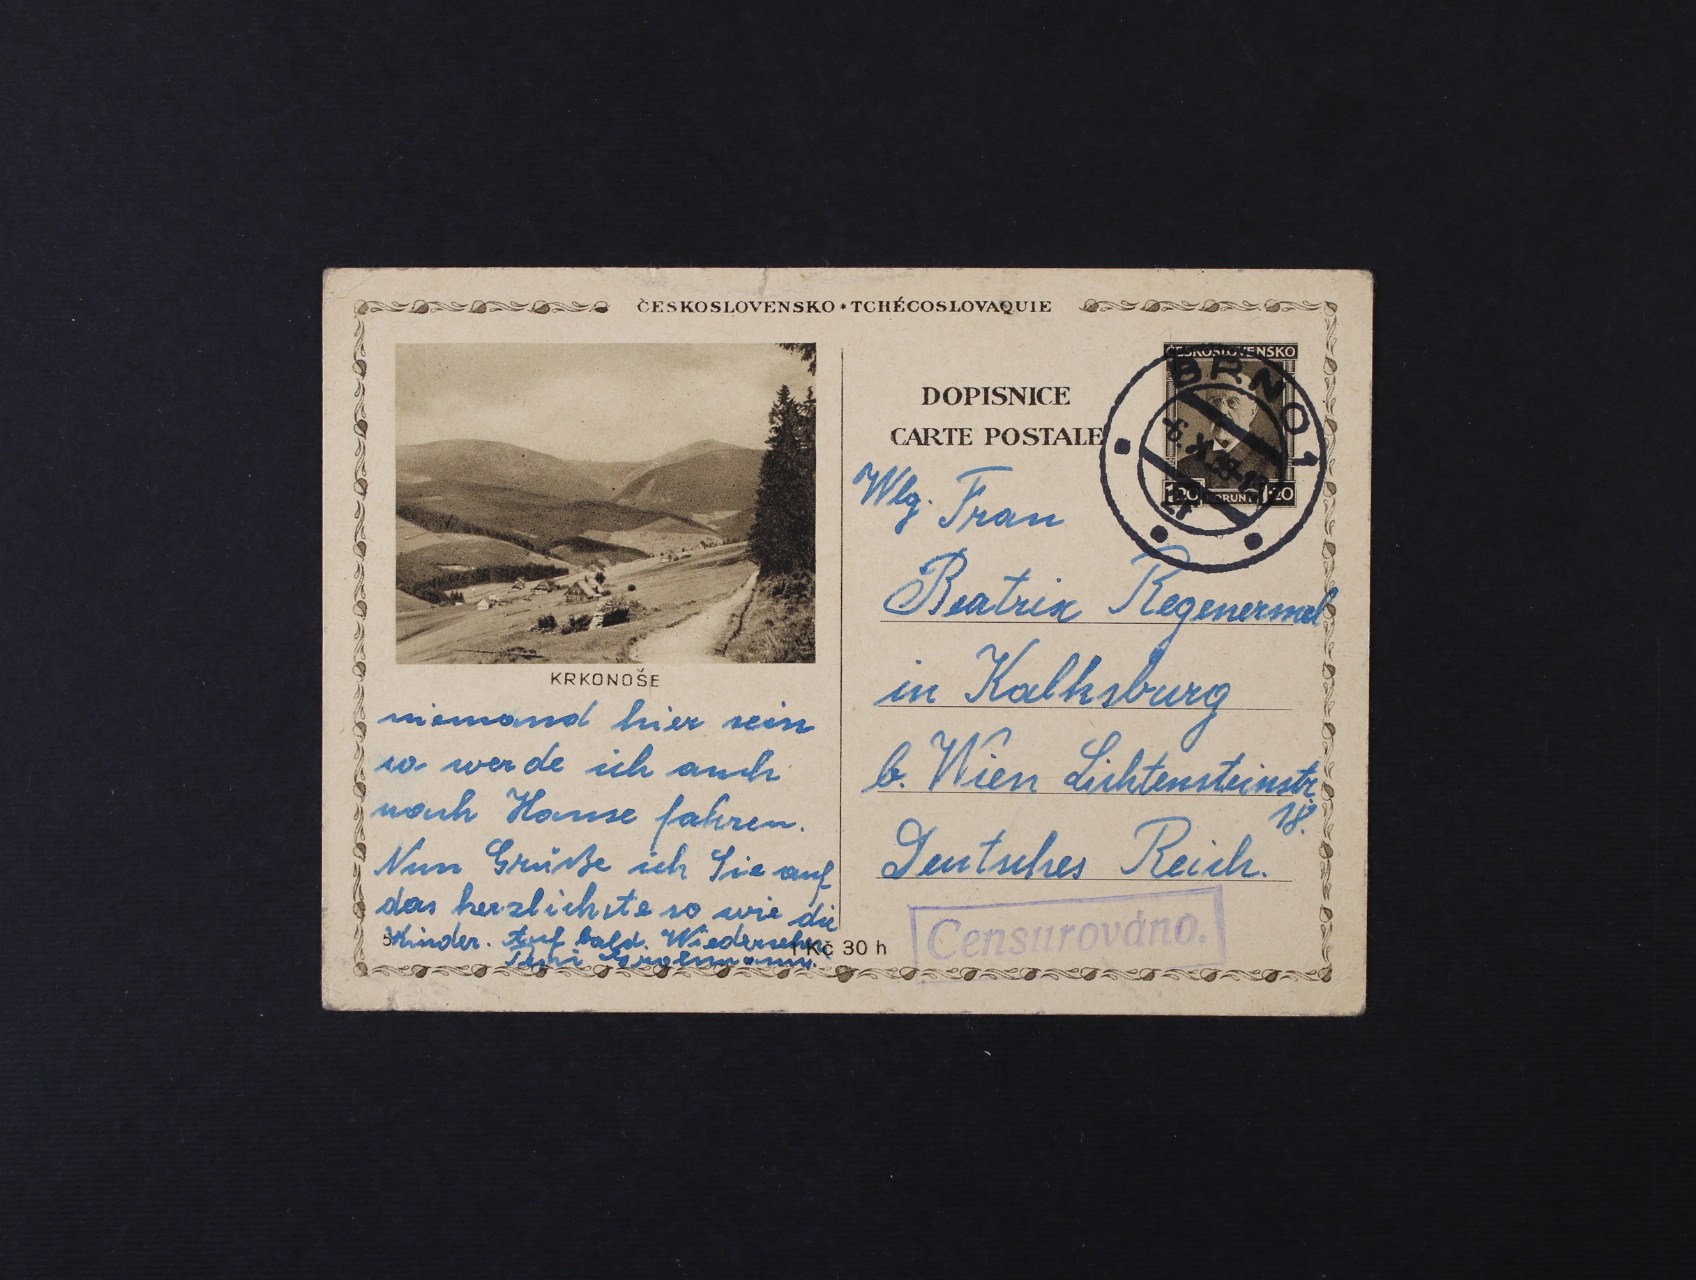 ČESKOSLOVENSKO • TCHÉCOSLOVAQUIE
ČESKOSLOVENSKO
BRNO 1
DOPISNICE
CARTE POSTALE
1·20 KORUNY 1·20
KRKONOŠE
niemand hier sein
so werde ich auch
nach Hause fahren.
Nun Grüße ich Sie auf
das herzlichste so wie die
Kinder. Auf bald. Wiedersehn
Wlg. Frau
Beatrix
in Kalksburg
b. Wien Lichtensteinstr.
18.
Deutsches Reich.
Censurováno.
1 Kč 30 h